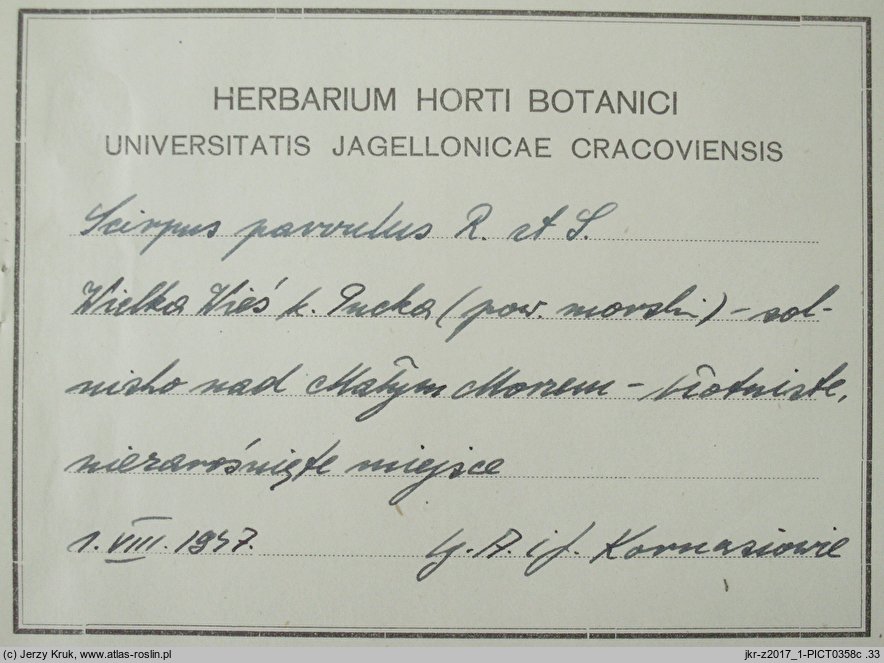 HERBARIUM HORTI BOTANICI
UNIVERSITATIS JAGELLONICAE CRACOVIENSIS
Scirpus parvulus R. et S.
Wielka Wieś k. Pucka (pow. morski) – sol-
nisko nad Małym Morzem – błotniste,
niezarośnięte miejsce
1. VIII. 1947. lg. A. i J. Kornasiowie
(c) Jerzy Kruk, www.atlas-roslin.pl
jkr-z2017_1-PICT0358c .33